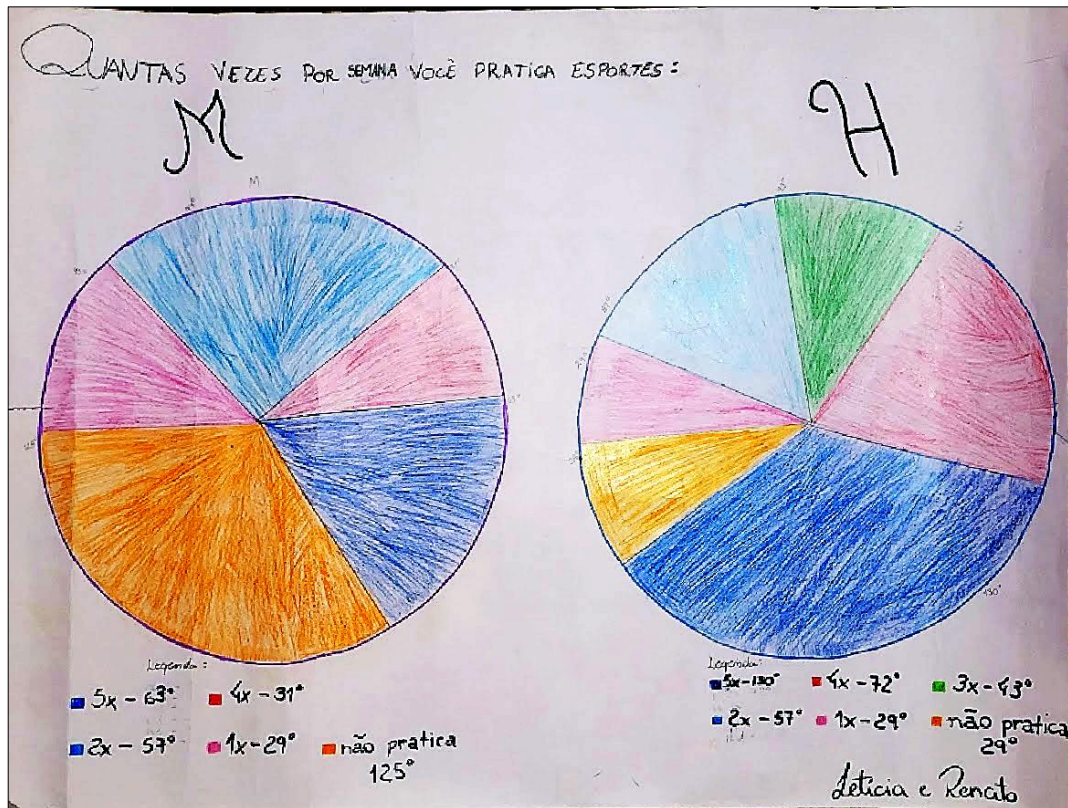 QUANTAS VEZES POR SEMANA VOCÊ PRATICA ESPORTES:
M
H
M
Legenda:
5x - 63° 4x - 31°
2x - 57° 1x - 29° não pratica
125°
130°
Legenda:
5x - 130° 4x - 72° 3x - 43°
2x - 57° 1x - 29° não pratica
29°
Letícia e Renato